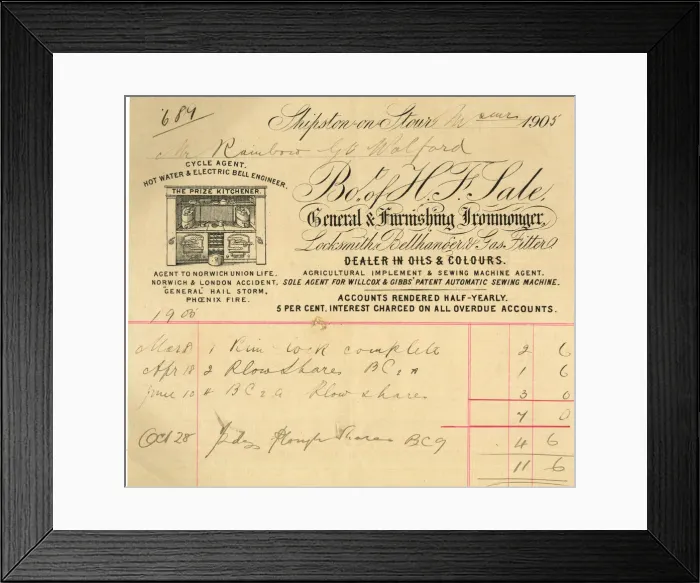 684
Shipston-on-Stour 1905
Mr Rainbow Gt Wolford
CYCLE AGENT.
HOT WATER & ELECTRIC BELL ENGINEER.
THE PRIZE KITCHENER.
AGENT TO NORWICH UNION LIFE,
NORWICH & LONDON ACCIDENT,
"GENERAL" HAIL STORM,
PHŒNIX FIRE.
Bot. of H. F. Sale,
General & Furnishing Ironmonger,
Locksmith, Bellhanger & Gas Fitter
DEALER IN OILS & COLOURS.
AGRICULTURAL IMPLEMENT & SEWING MACHINE AGENT.
SOLE AGENT FOR WILLCOX & GIBBS' PATENT AUTOMATIC SEWING MACHINE.
ACCOUNTS RENDERED HALF-YEARLY.
5 PER CENT. INTEREST CHARGED ON ALL OVERDUE ACCOUNTS.
Mar 8 1 Rim lock complete 2 6
Apr 18 2 Plow Shares BC2A 1 6
June 10 BC2A Plow shares 3 0
7 0
Oct 28 Plough Shares BC9 4 6
11 6